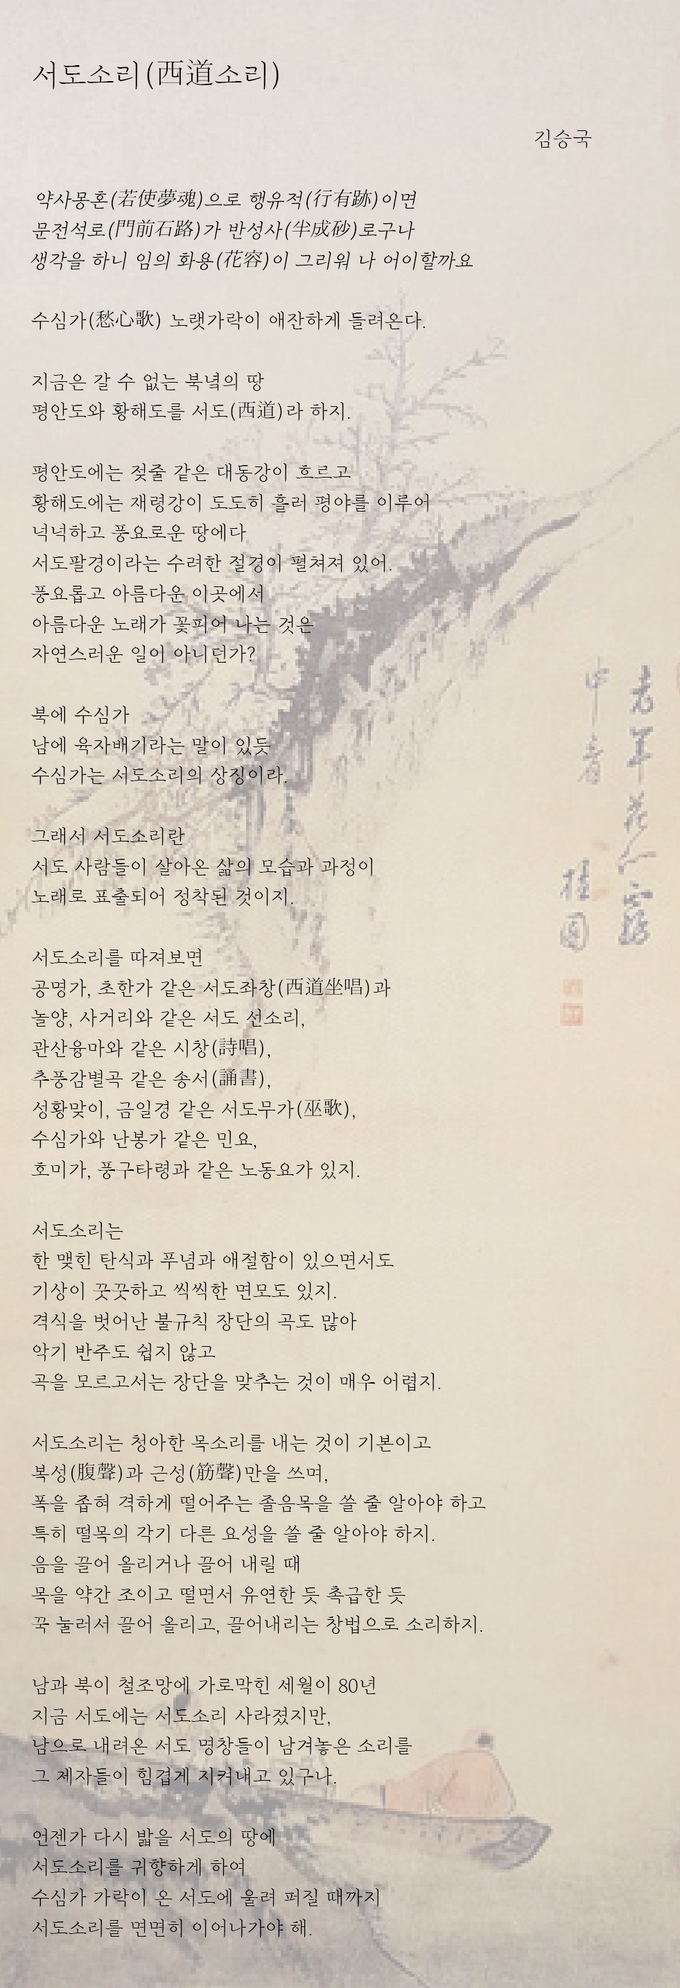 서도소리(西道소리)
김승국
약사몽혼(若使夢魂)으로 행유적(行有跡)이면
문전석로(門前石路)가 반성사(半成砂)로구나
생각을 하니 임의 화용(花容)이 그리워 나 어이할까요
수심가(愁心歌) 노랫가락이 애잔하게 들려온다.
지금은 갈 수 없는 북녘의 땅
평안도와 황해도를 서도(西道)라 하지.
평안도에는 젖줄 같은 대동강이 흐르고
황해도에는 재령강이 도도히 흘러 평야를 이루어
넉넉하고 풍요로운 땅에다
서도팔경이라는 수려한 절경이 펼쳐져 있어.
풍요롭고 아름다운 이곳에서
아름다운 노래가 꽃피어 나는 것은
자연스러운 일이 아니던가?
북에 수심가
남에 육자배기라는 말이 있듯
수심가는 서도소리의 상징이라.
그래서 서도소리란
서도 사람들이 살아온 삶의 모습과 과정이
노래로 표출되어 정착된 것이지.
서도소리를 따져보면
공명가, 초한가 같은 서도좌창(西道坐唱)과
놀양, 사거리와 같은 서도 선소리,
관산융마와 같은 시창(詩唱),
추풍감별곡 같은 송서(誦書),
성황맞이, 금일경 같은 서도무가(巫歌),
수심가와 난봉가 같은 민요,
호미가, 풍구타령과 같은 노동요가 있지.
서도소리는
한 맺힌 탄식과 푸념과 애절함이 있으면서도
기상이 꿋꿋하고 씩씩한 면모도 있지.
격식을 벗어난 불규칙 장단의 곡도 많아
악기 반주도 쉽지 않고
곡을 모르고서는 장단을 맞추는 것이 매우 어렵지.
서도소리는 청아한 목소리를 내는 것이 기본이고
복성(腹聲)과 근성(筋聲)만을 쓰며,
폭을 좁혀 격하게 떨어주는 졸음목을 쓸 줄 알아야 하고
특히 떨목의 각기 다른 요성을 쓸 줄 알아야 하지.
음을 끌어 올리거나 끌어 내릴 때
목을 약간 조이고 떨면서 유연한 듯 촉급한 듯
꾹 눌러서 끌어 올리고, 끌어내리는 창법으로 소리하지.
남과 북이 철조망에 가로막힌 세월이 80년
지금 서도에는 서도소리 사라졌지만,
남으로 내려온 서도 명창들이 남겨놓은 소리를
그 제자들이 힘겹게 지켜내고 있구나.
언젠가 다시 밟을 서도의 땅에
서도소리를 귀향하게 하여
수심가 가락이 온 서도에 울려 퍼질 때까지
서도소리를 면면히 이어나가야 해.
老年花似霧
中看